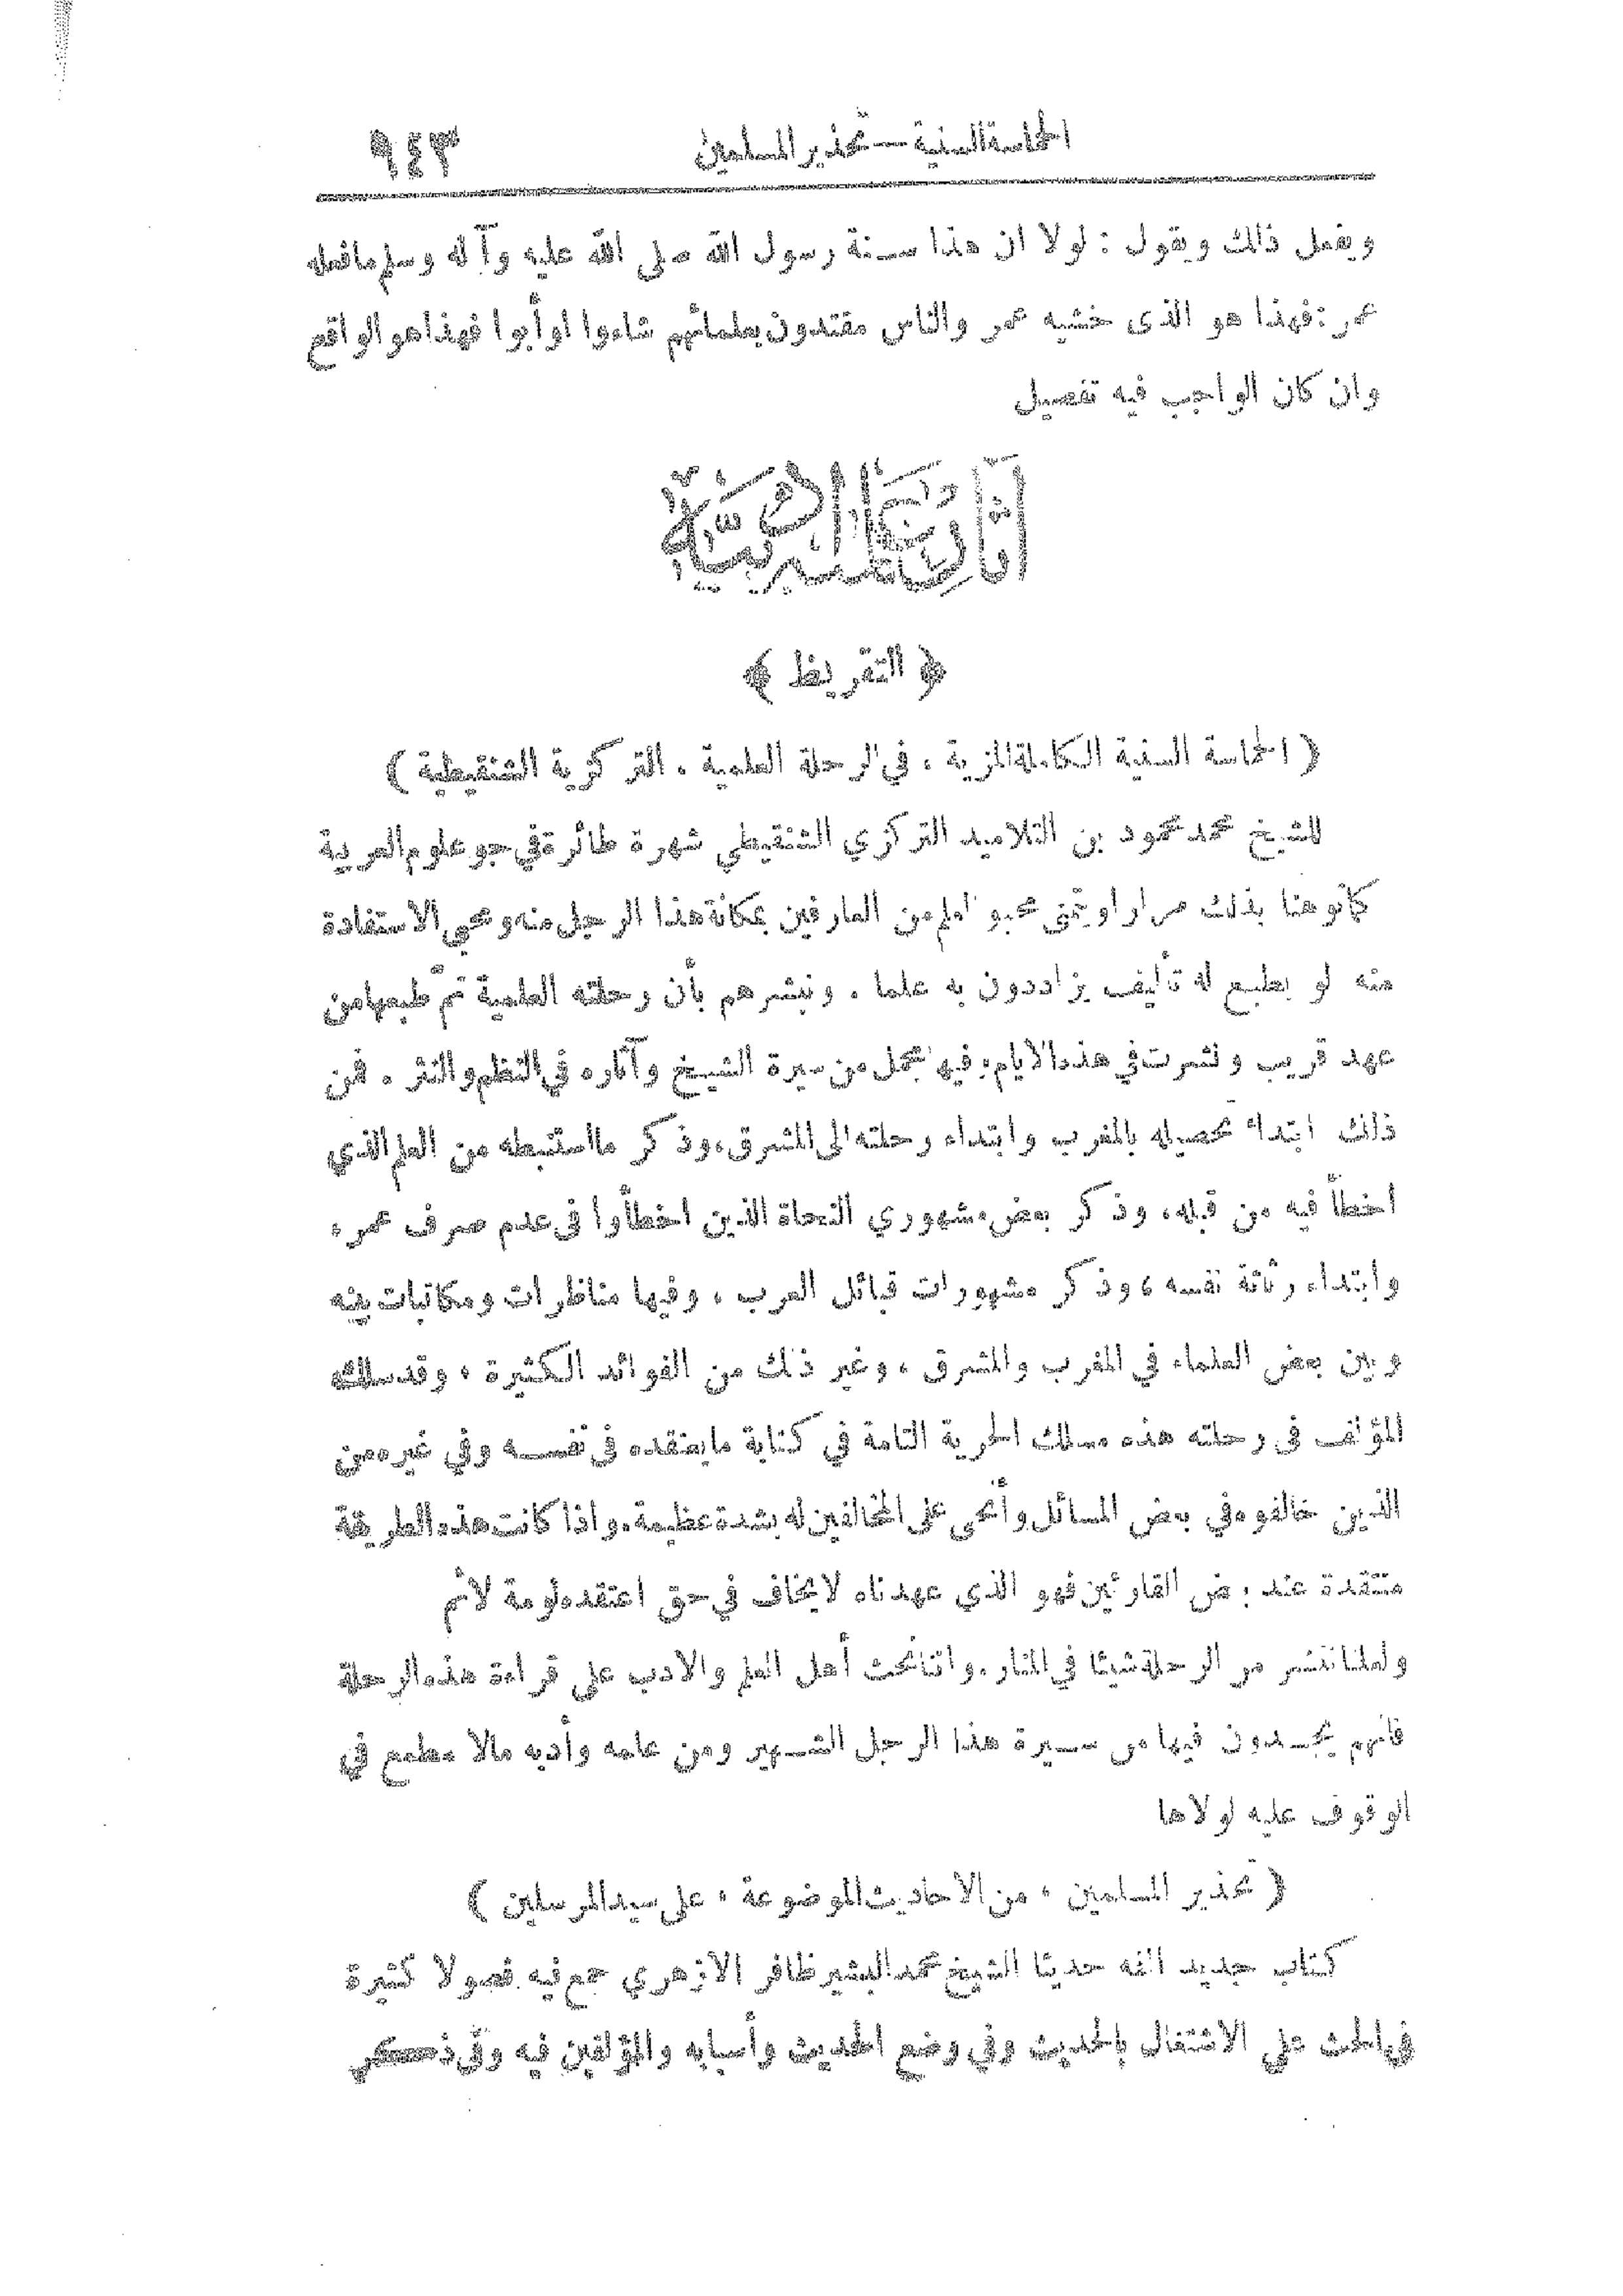 الحماسة السنية — تحذير المسلمين ٩٤٣
ويفعل ذلك ويقول : لولا ان هذا سنة رسول الله صلى الله عليه وآله وسلم مافعله
عمر : فهذا هو الذى خشيه عمر والناس مقتدون بعلمائهم شاءوا او أبوا فهذا هو الواقع
وان كان الواجب فيه تفصيل
﴿ التقريظ ﴾
( الحماسة السنية الكاملة المزية ، في الرحلة العلمية . التركزية الشنقيطية )
للشيخ محمد محمود بن التلاميد التركزي الشنقيطي شهرة طائرة في جو علوم العربية
كما نوهنا بذلك مرارا ويتمنى محبو العلم من العارفين بمكانة هذا الرجل منه ومحبي الاستفادة
منه لو يطبع له تأليف يزاددون به علما . ونبشرهم بأن رحلته العلمية تمّ طبعها من
عهد قريب ونشرت في هذه الايام وفيها مجمل من سيرة الشيخ وآثاره في النظم والنثر . فمن
ذلك ابتداء تحصيله بالمغرب وابتداء رحلته الى المشرق ، وذكر ما استنبطه من العلم الذي
اخطأ فيه من قبله ، وذكر بعض مشهوري النحاة الذين اخطأوا فى عدم صرف عمر ،
وابتداء رثائة نفسه ، وذكر مشهورات قبائل العرب ، وفيها مناظرات ومكاتبات بينه
وبين بعض العلماء في المغرب والمشرق ، وغير ذلك من الفوائد الكثيرة ، وقد سلك
المؤلف فى رحلته هذه مسلك الحرية التامة في كتابة ما يعتقده فى نفسه وفي غيره من
الذين خالفوه في بعض المسائل وأنحى على المخالفين له بشدة عظيمة . واذا كانت هذه الطريقة
منتقدة عند بعض القارئين فهو الذي عهدناه لا يخاف في حق اعتقده لومة لائم
ولعلنا ننشر من الرحلة شيئا في المنار . واننا نحث أهل العلم والادب على قراءة هذه الرحلة
فانهم يجدون فيها من سيرة هذا الرجل الشهير ومن علمه وأدبه مالا مطمع في
الوقوف عليه لولاها
( تحذير المسلمين ، من الاحاديث الموضوعة ، على سيد المرسلين )
كتاب جديد الفه حديثا الشيخ محمد البشير ظافر الازهري جمع فيه فصولا كثيرة
في الحث على الاشتغال بالحديث وفي وضع الحديث وأسبابه والمؤلفين فيه وفى ذكر